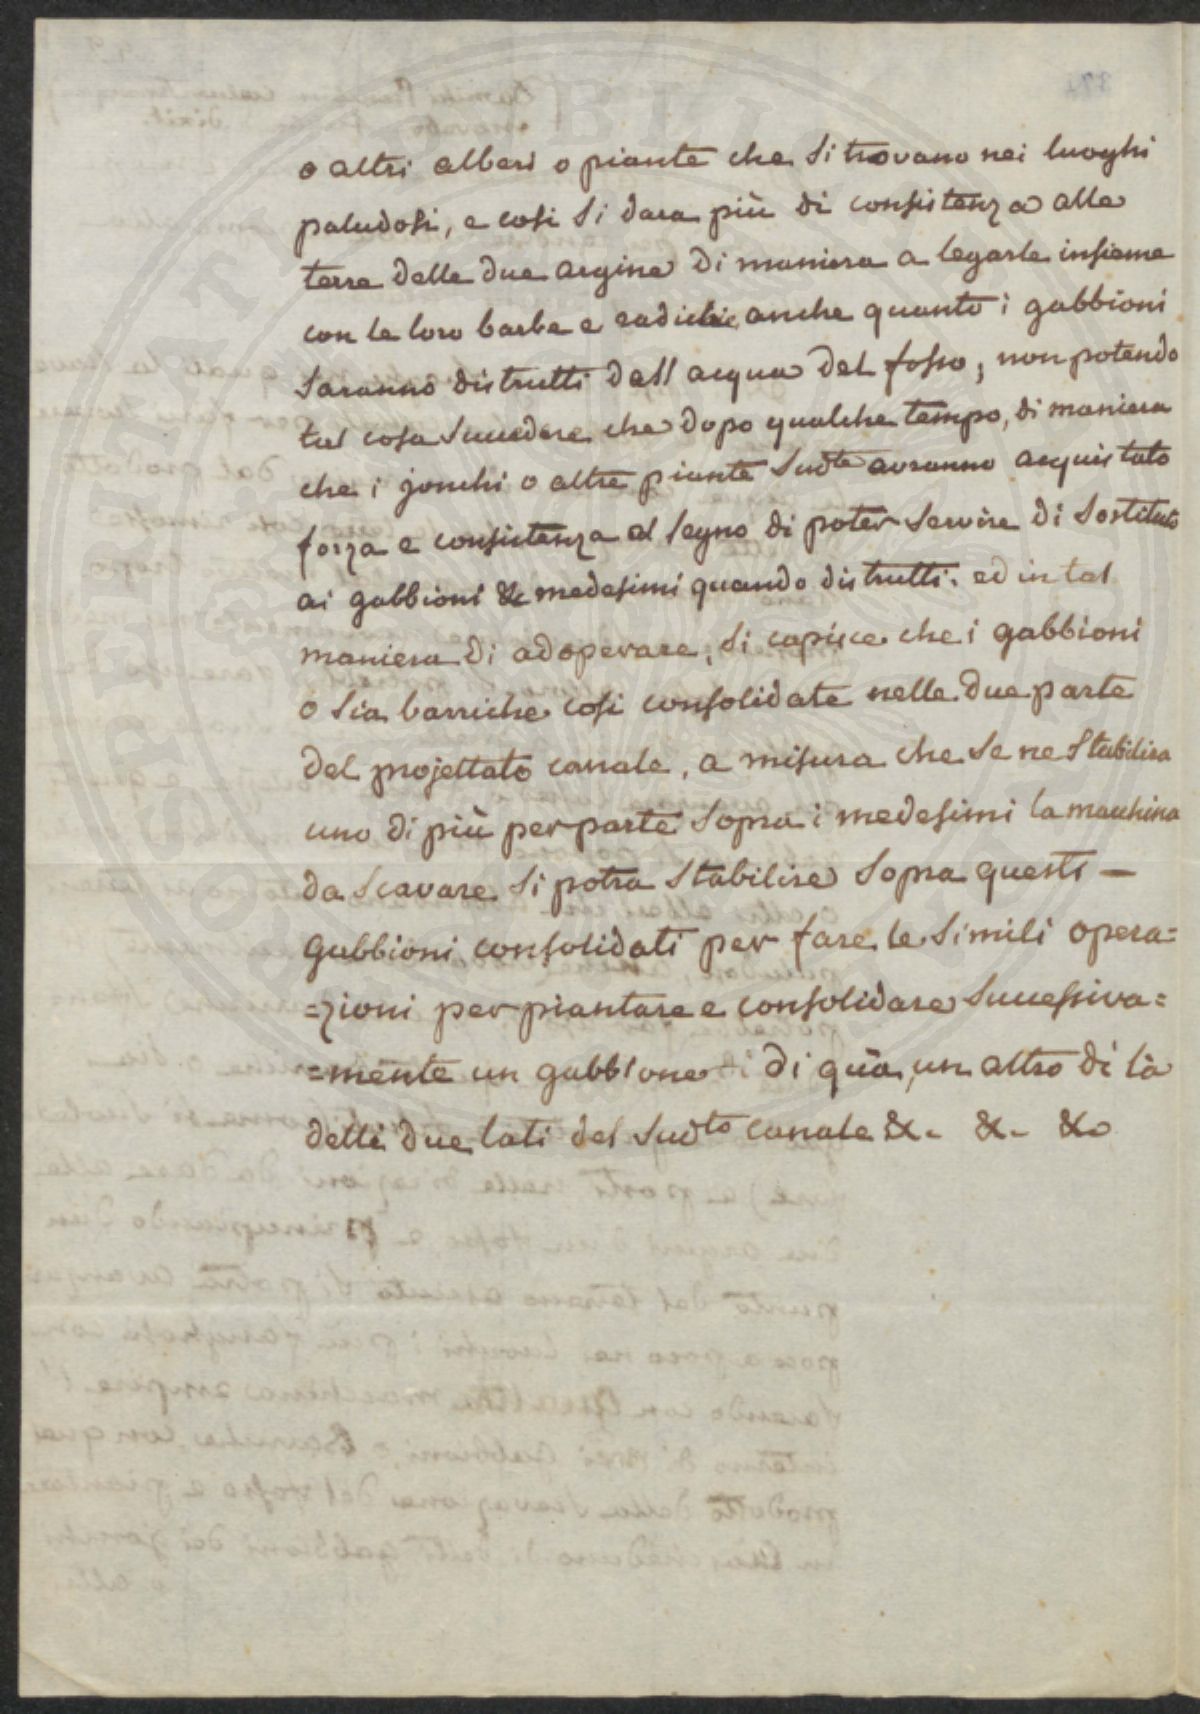 o altri alberi o piante che si trovano nei luoghi
paludosi, e cosi si dara più di consistenza alle
terre delle due argine di maniera a legarle insieme
con le loro barbe e radiche, anche quanto i gabbioni
saranno distrutti dall acqua del fosso, non potendo
tal cosa succedere che dopo qualche tempo, di maniera
che i jonchi o altre piante sudte avranno acquistato
forza e consistenza al segno di poter servire di sostituto
ai gabbioni & medesimi quando distrutti. ed in tal
maniera di adoperare, si capisce che i gabbioni
o sia barriche cosi consolidate nelle due parte
del projettato canale, a misura che se ne stabilira
uno di più per parte sopra i medesimi la machina
da scavare si potra stabilire sopra questi —
gabbioni consolidati per fare le simili opera=
=zioni per piantare e consolidare successiva=
=mente un gabbione di qua, un altro di là
delli due lati del sudto canale &. &. &.